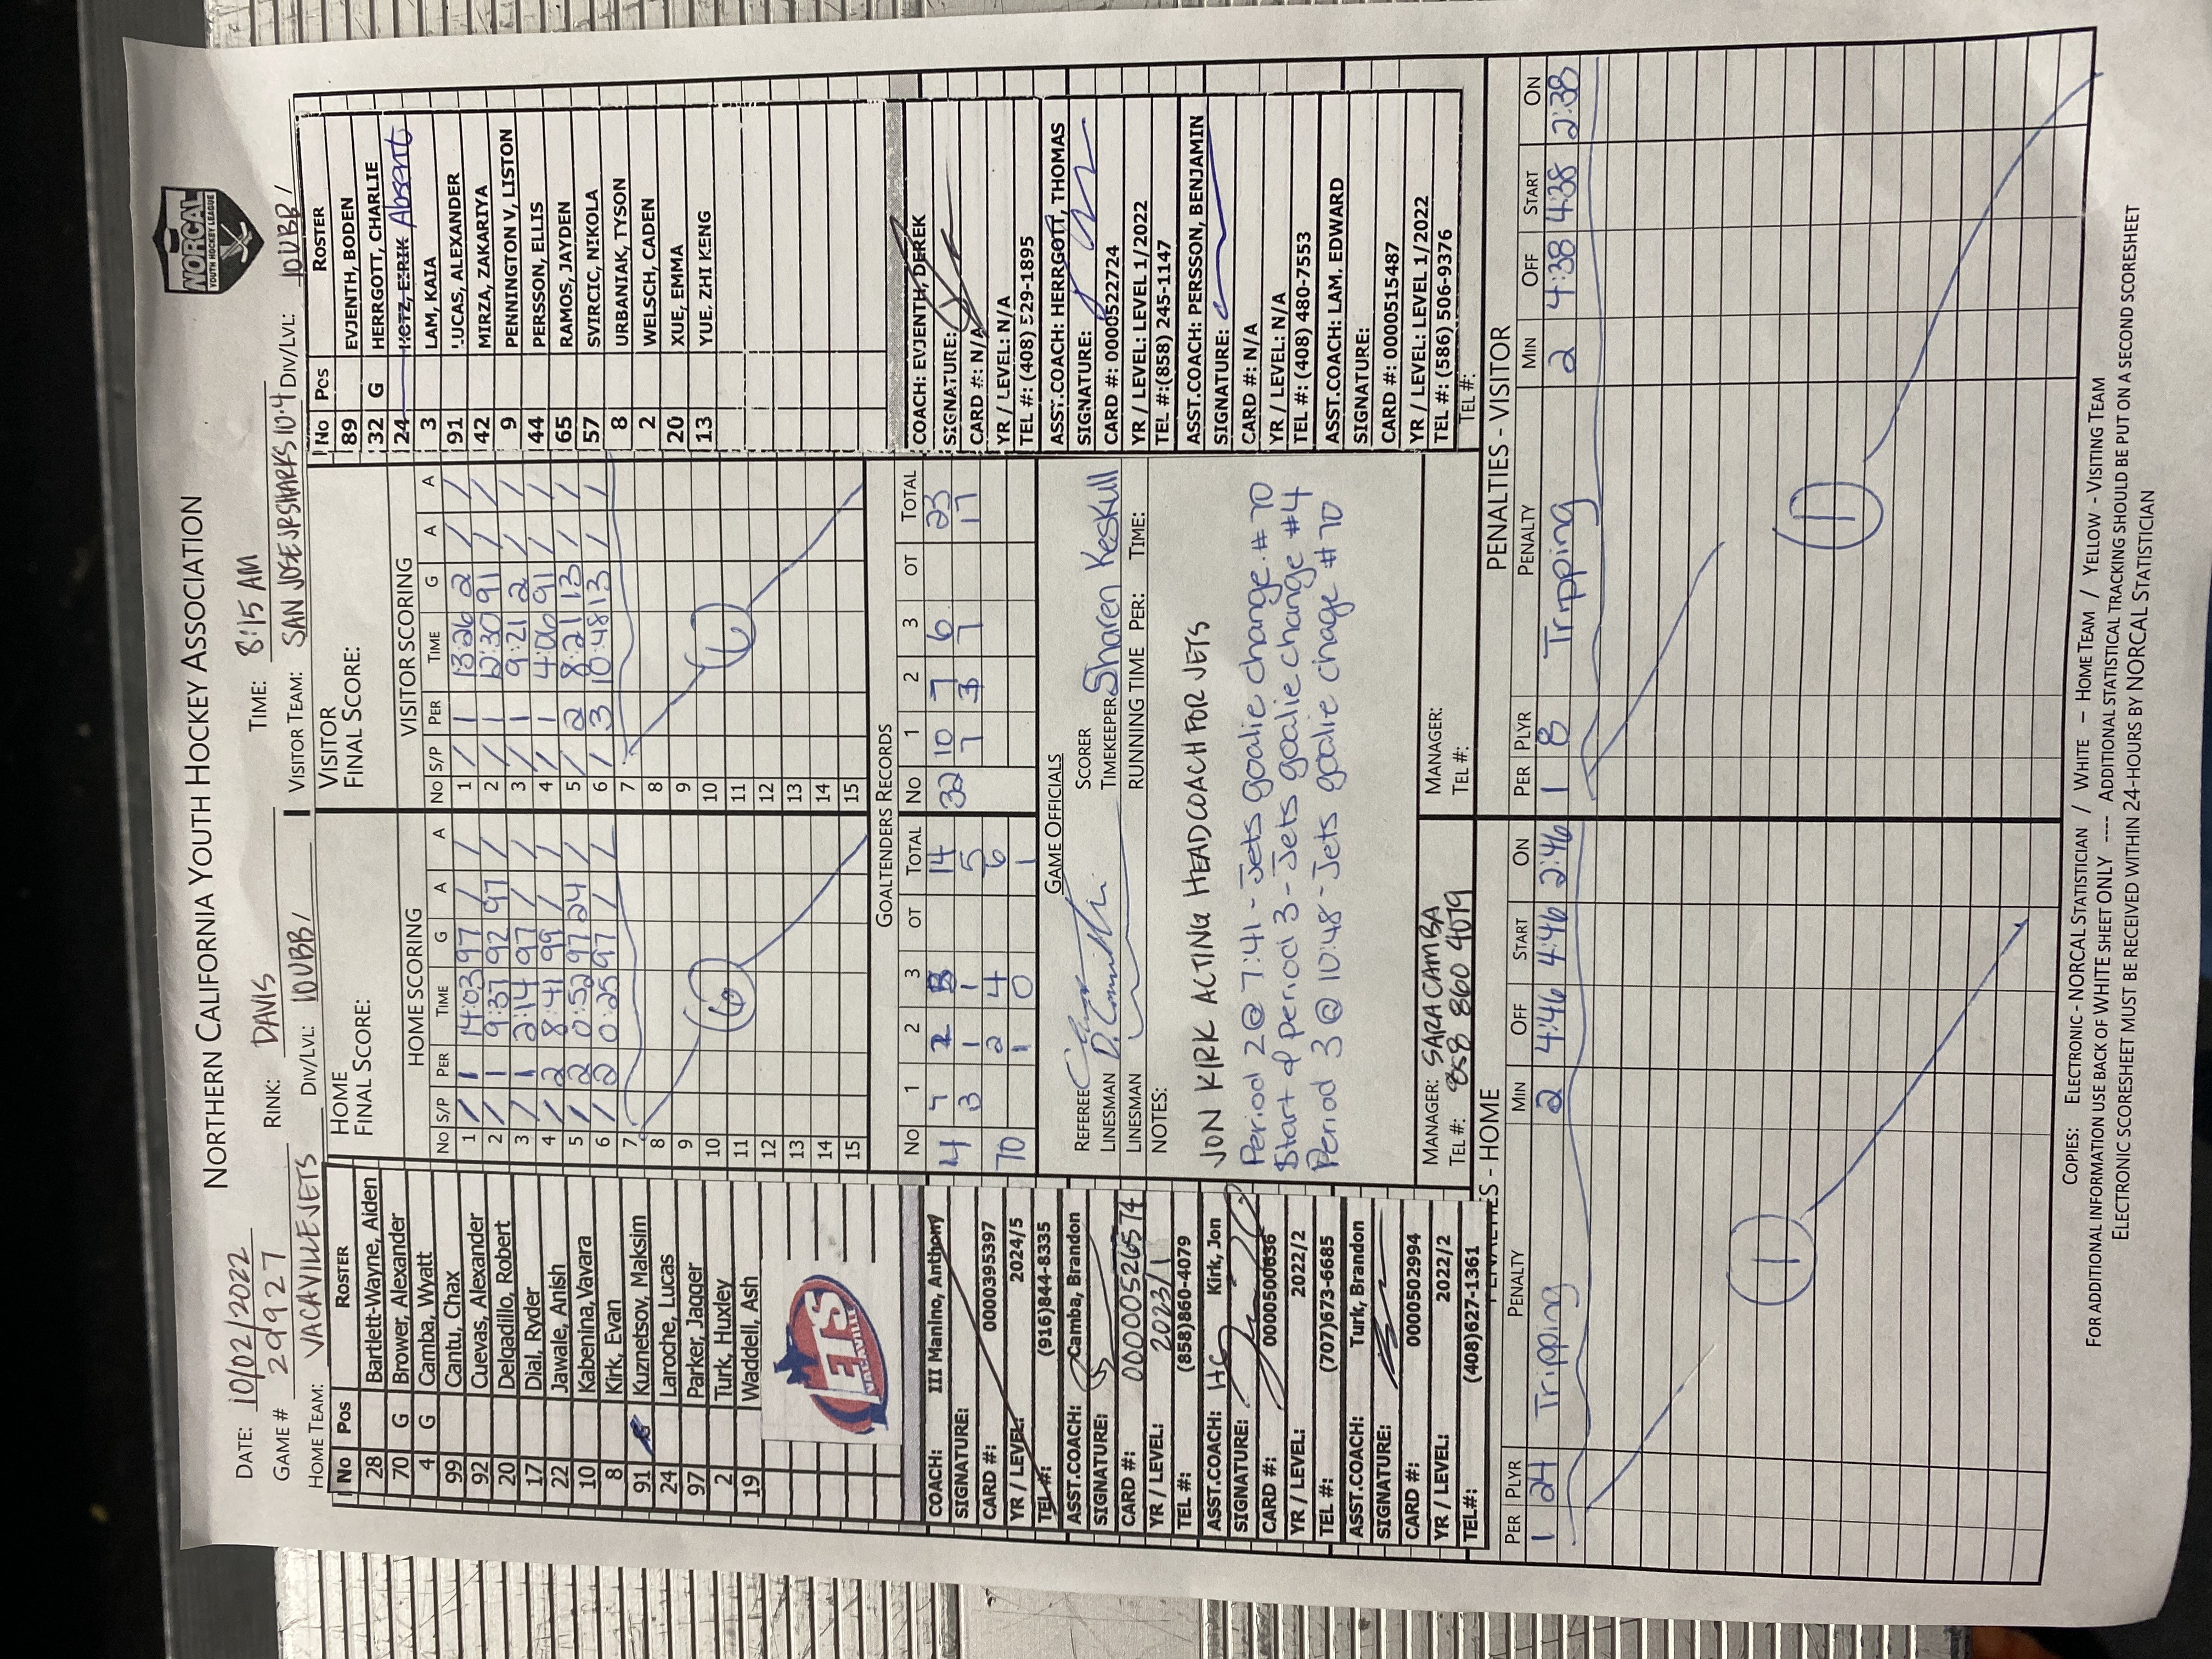 NORTHERN CALIFORNIA YOUTH HOCKEY ASSOCIATION
NORCAL
YOUTH HOCKEY LEAGUE
DATE: 10/02/2022
GAME # 29927 RINK: DAVIS TIME: 8:15 AM
HOME TEAM: VACAVILLE JETS DIV/LVL: 10UBB/ VISITOR TEAM: SAN JOSE JR SHARKS 10-4 DIV/LVL: 10UBB/
No Pos ROSTER
28 Bartlett-Wayne, Aiden
70 G Brower, Alexander
4 G Camba, Wyatt
99 Cantu, Chax
92 Cuevas, Alexander
20 Delgadillo, Robert
17 Dial, Ryder
22 Jawale, Anish
10 Kabenina, Vavara
8 Kirk, Evan
91 Kuznetsov, Maksim
24 Laroche, Lucas
97 Parker, Jagger
2 Turk, Huxley
19 Waddell, Ash
JETS
VACAVILLE
HOME
FINAL SCORE:
HOME SCORING
NO S/P PER TIME G A A
1 / 1 14:03 97 / /
2 / 1 9:37 92 97 /
3 / 1 2:14 97 / /
4 / 2 8:41 99 / /
5 / 2 0:52 97 24 /
6 / 2 0:25 97 / /
7
8
9
10
11
12
13
14
15
6
VISITOR
FINAL SCORE:
VISITOR SCORING
NO S/P PER TIME G A A
1 / 1 13:26 2 / /
2 / 1 12:30 91 / /
3 / 1 9:21 2 / /
4 / 1 4:06 91 / /
5 / 2 8:21 13 / /
6 / 3 10:48 13 / /
7
8
9
10
11
12
13
14
15
6
No Pos ROSTER
89 EVJENTH, BODEN
32 G HERRGOTT, CHARLIE
24 KOTZ, ERIK Absent
3 LAM, KAIA
91 LUCAS, ALEXANDER
42 MIRZA, ZAKARIYA
9 PENNINGTON V, LISTON
44 PERSSON, ELLIS
65 RAMOS, JAYDEN
57 SVIRCIC, NIKOLA
8 URBANIAK, TYSON
2 WELSCH, CADEN
20 XUE, EMMA
13 YUE, ZHI KENG
GOALTENDERS RECORDS
NO 1 2 3 OT TOTAL NO 1 2 3 OT TOTAL
4 7 14 32 10 7 6 23
3 1 1 5 7 3 7 17
70 2 4 6
1 0 1
COACH: III Manino, Anthony
SIGNATURE:
CARD #: 0000395397
YR / LEVEL: 2024/5
TEL #: (916)844-8335
ASST.COACH: Camba, Brandon
SIGNATURE:
CARD #: 0000526574
YR / LEVEL: 2023/1
TEL #: (858)860-4079
ASST.COACH: HC Kirk, Jon
SIGNATURE:
CARD #: 0000500636
YR / LEVEL: 2022/2
TEL #: (707)673-6685
ASST.COACH: Turk, Brandon
SIGNATURE:
CARD #: 0000502994
YR / LEVEL: 2022/2
TEL#: (408)627-1361
GAME OFFICIALS
REFEREE SCORER
LINESMAN TIMEKEEPER Sharen Keskull
LINESMAN RUNNING TIME PER: TIME:
NOTES:
JON KIRK ACTING HEADCOACH FOR JETS
Period 2 @ 7:41 - Jets goalie change # 70
Start of period 3 - Jets goalie change #4
Period 3 @ 10:48 - Jets goalie chage # 70
MANAGER: SARA CAMBA
TEL #: 858 860 4079
MANAGER:
TEL #:
COACH: EVJENTH, DEREK
SIGNATURE:
CARD #: N/A
YR / LEVEL: N/A
TEL #: (408) 529-1895
ASST.COACH: HERRGOTT, THOMAS
SIGNATURE:
CARD #: 0000522724
YR / LEVEL: LEVEL 1/2022
TEL #:(858) 245-1147
ASST.COACH: PERSSON, BENJAMIN
SIGNATURE:
CARD #: N/A
YR / LEVEL: N/A
TEL #: (408) 480-7553
ASST.COACH: LAM, EDWARD
SIGNATURE:
CARD #: 0000515487
YR / LEVEL: LEVEL 1/2022
TEL #: (586) 506-9376
TEL #:
PENALTIES - HOME
PER PLYR PENALTY MIN OFF START ON
1 24 Tripping 2 4:46 4:46 2:46
1
PENALTIES - VISITOR
PER PLYR PENALTY MIN OFF START ON
1 8 Tripping 2 4:38 4:38 2:38
1
COPIES: ELECTRONIC - NORCAL STATISTICIAN / WHITE – HOME TEAM / YELLOW - VISITING TEAM
FOR ADDITIONAL INFORMATION USE BACK OF WHITE SHEET ONLY ---- ADDITIONAL STATISTICAL TRACKING SHOULD BE PUT ON A SECOND SCORESHEET
ELECTRONIC SCORESHEET MUST BE RECEIVED WITHIN 24-HOURS BY NORCAL STATISTICIAN